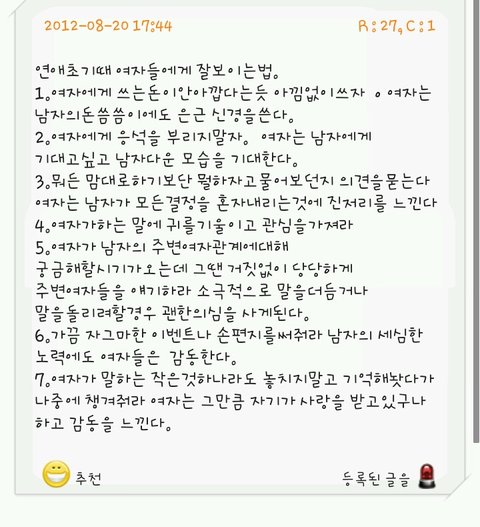 2012-08-20 17:44 R:27, C:1
연애초기때 여자들에게 잘보이는법.
1.여자에게 쓰는돈이안아깝다는듯 아낌없이쓰자 ㅇ여자는
남자의돈씀씀이에도 은근 신경을쓴다.
2.여자에게 응석을 부리지말자. 여자는 남자에게
기대고싶고 남자다운 모습을 기대한다.
3.뭐든 맘대로하기보단 뭘하자고물어보던지 의견을묻는다
여자는 남자가 모든결정을 혼자내리는것에 진저리를 느낀다
4.여자가하는 말에 귀를기울이고 관심을가져라
5.여자가 남자의 주변여자관계에대해
궁금해할시기가오는데 그땐 거짓없이 당당하게
주변여자들을 얘기하라 소극적으로 말을더듬거나
말을돌리려할경우 괜한의심을 사게된다.
6.가끔 자그마한 이벤트나 손편지를써줘라 남자의 세심한
노력에도 여자들은 감동한다.
7.여자가 말하는 작은것하나라도 놓치지말고 기억해놧다가
나중에 챙겨줘라 여자는 그만큼 자기가 사랑을 받고있구나
하고 감동을 느낀다.
추천 등록된 글을